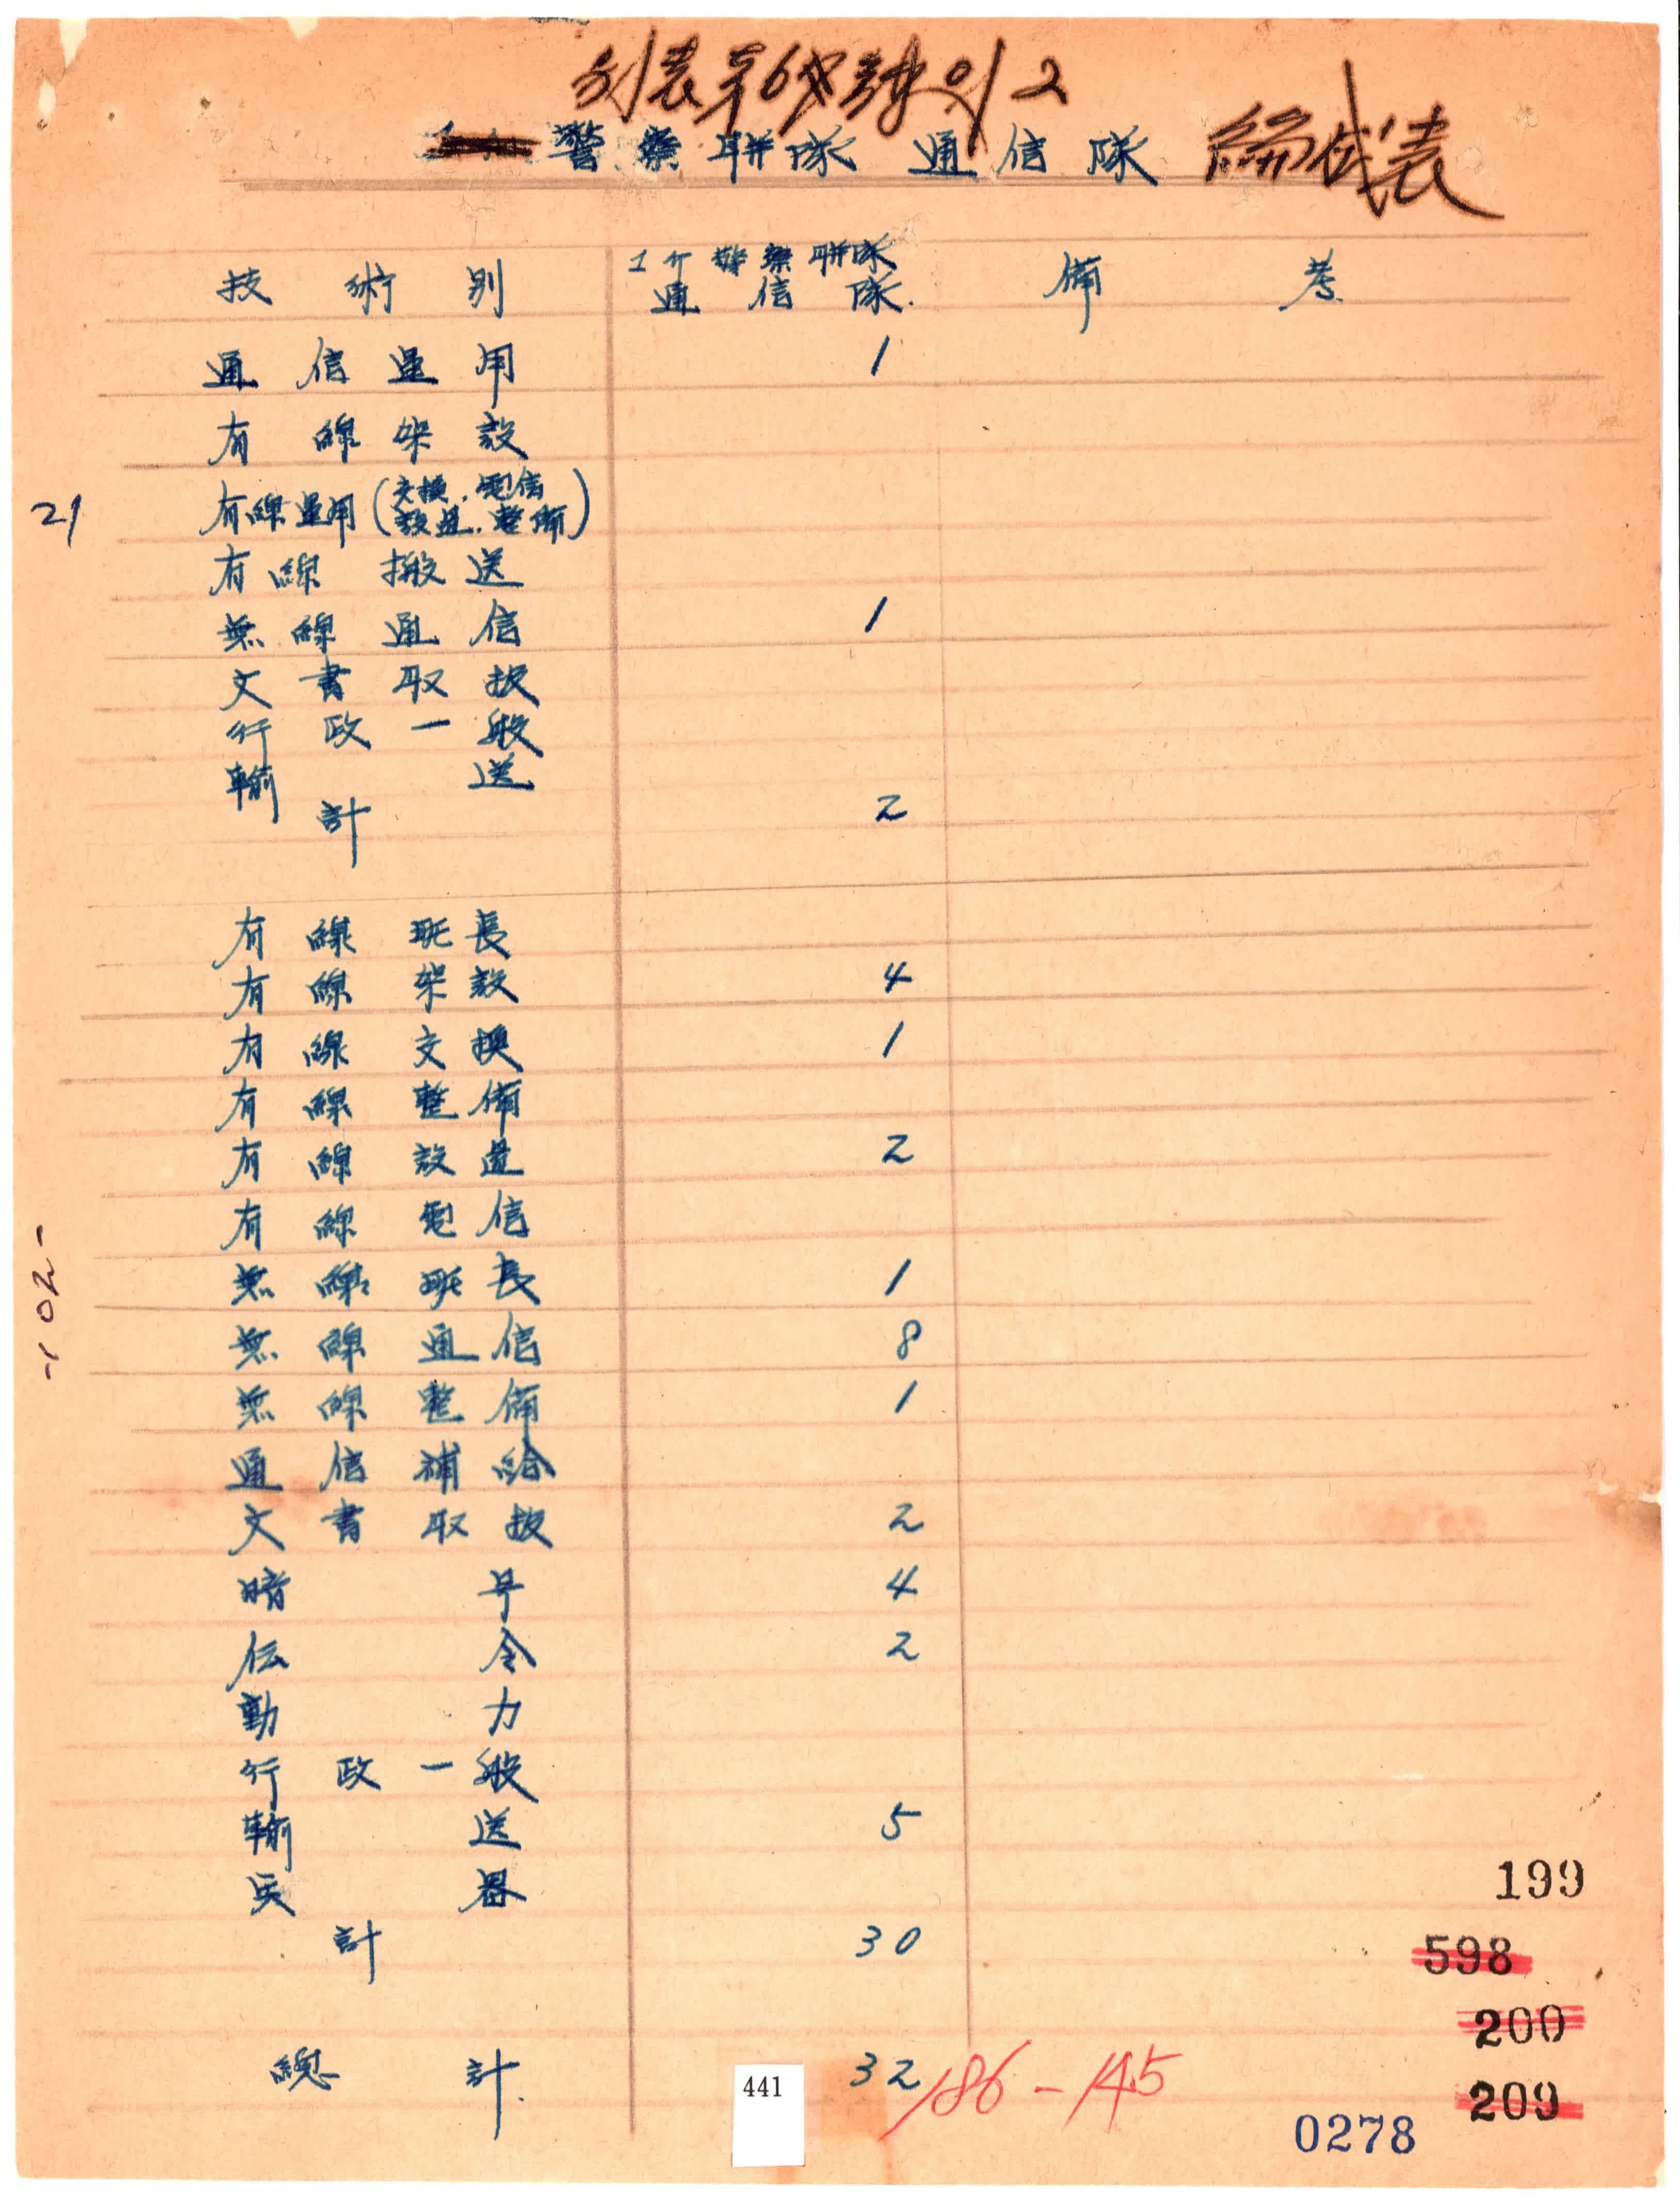 別表第6 2
警察聯隊通信隊 編成表
技術別 1ケ警察聯隊通信隊 備考
通信運用 1
有線架設
有線運用(交換.電信 設置.整備)
21
有線搬送
無線通信 1
文書取扱
行政一般
輸送
計 2
有線班長
有線架設 4
有線交換 1
有線整備
有線設置 2
有線電信
無線班長 1
-102-
無線通信 8
無線整備 1
通信補給
文書取扱 2
暗号 4
伝令 2
動力
行政一般
輸送 5
兵器
199
計 30
598
200
総計 32
186-145
441
209
0278